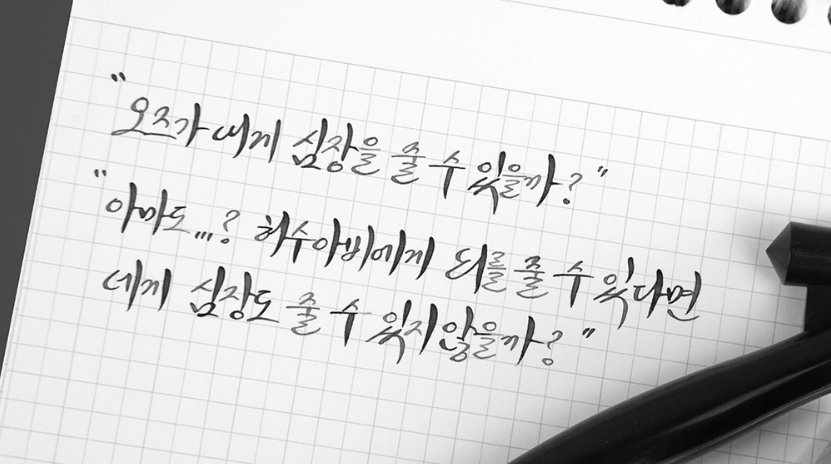 "오즈가 내게 심장을 줄 수 있을까?"
"아마도...? 허수아비에게 뇌를 줄 수 있다면
네게 심장도 줄 수 있지않을까?"